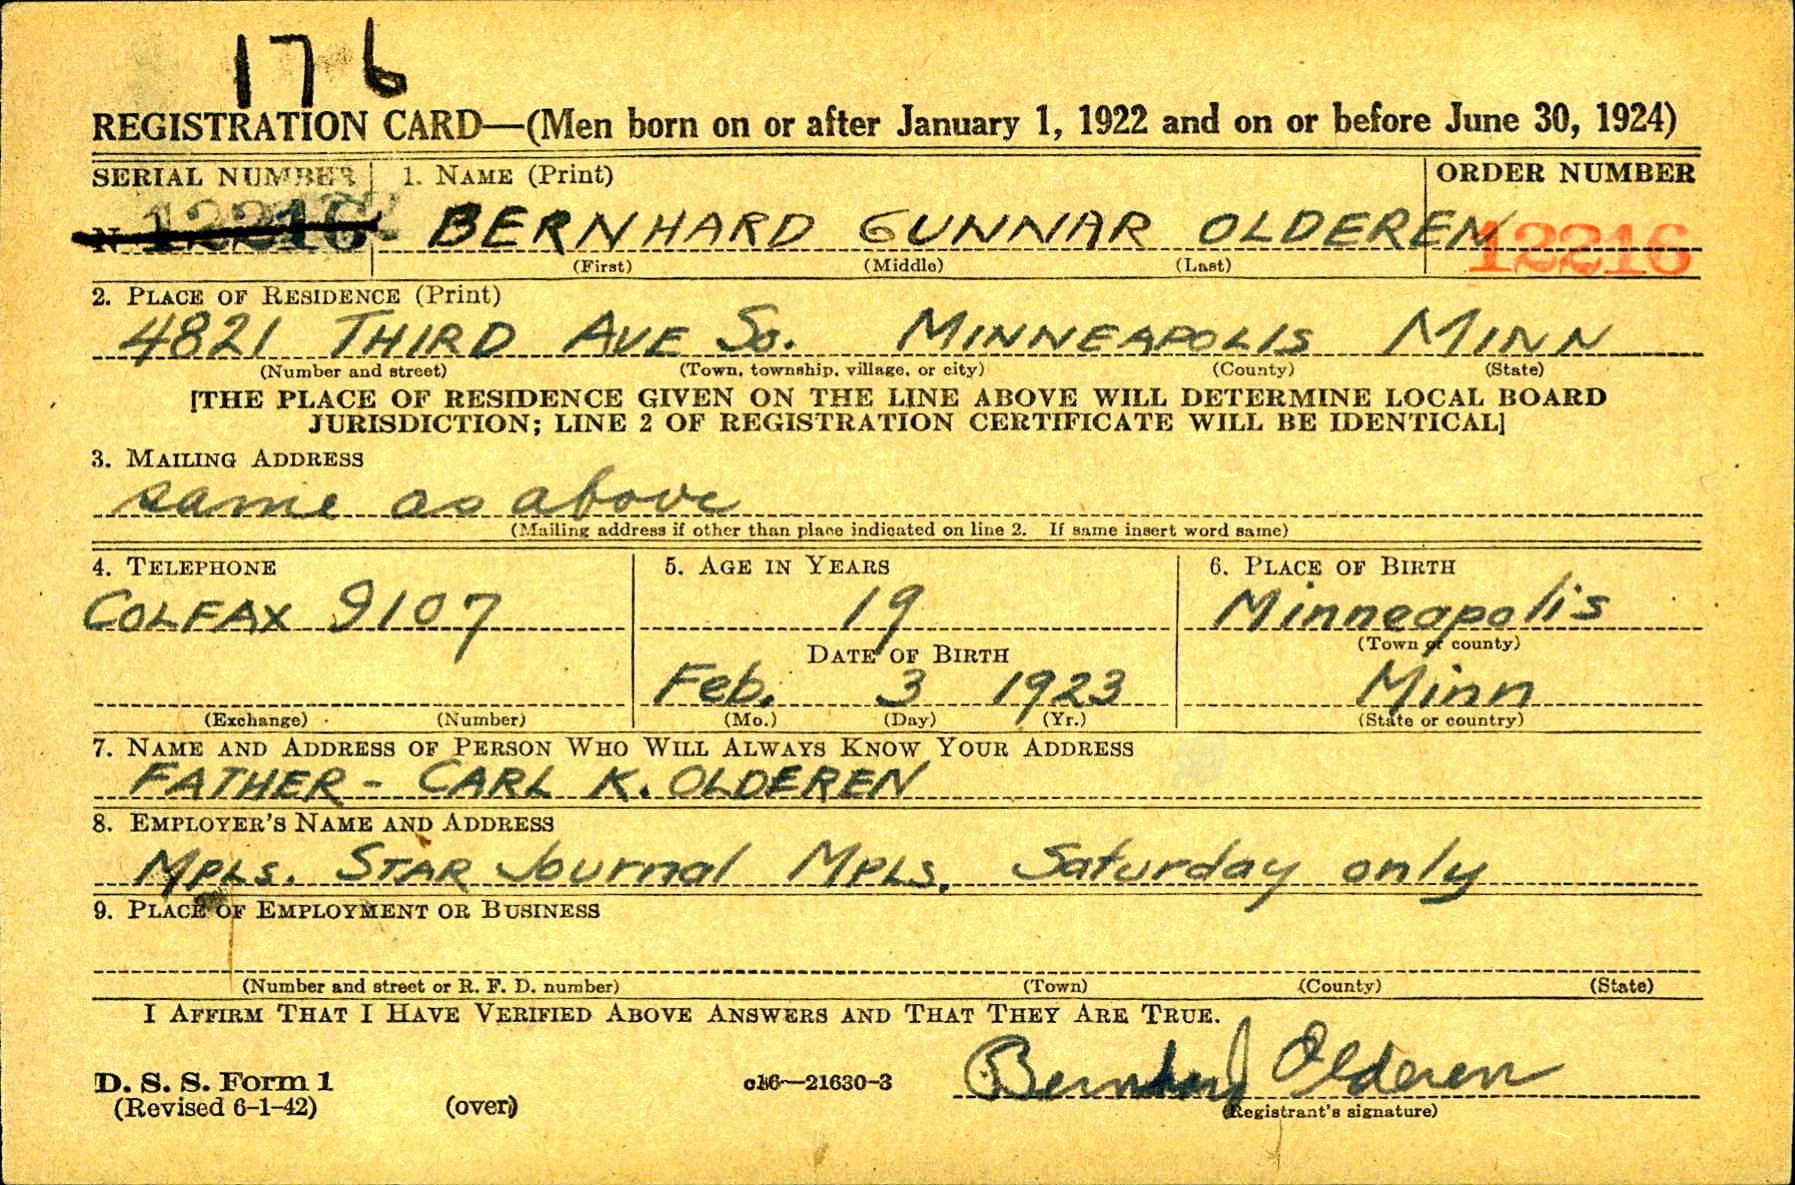 176
REGISTRATION CARD—(Men born on or after January 1, 1922 and on or before June 30, 1924)
SERIAL NUMBER 1. NAME (Print) ORDER NUMBER
N 12216 BERNHARD GUNNAR OLDEREN 12216
(First) (Middle) (Last)
2. PLACE OF RESIDENCE (Print)
4821 THIRD AVE SO. MINNEAPOLIS MINN
(Number and street) (Town, township, village, or city) (County) (State)
[THE PLACE OF RESIDENCE GIVEN ON THE LINE ABOVE WILL DETERMINE LOCAL BOARD
JURISDICTION; LINE 2 OF REGISTRATION CERTIFICATE WILL BE IDENTICAL]
3. MAILING ADDRESS
same as above
(Mailing address if other than place indicated on line 2. If same insert word same)
4. TELEPHONE 5. AGE IN YEARS 6. PLACE OF BIRTH
COLFAX 9107 19 Minneapolis
DATE OF BIRTH (Town or county)
Feb. 3 1923 Minn
(Exchange) (Number) (Mo.) (Day) (Yr.) (State or country)
7. NAME AND ADDRESS OF PERSON WHO WILL ALWAYS KNOW YOUR ADDRESS
FATHER - CARL K. OLDEREN
8. EMPLOYER'S NAME AND ADDRESS
MPLS. STAR Journal MPLS. Saturday only
9. PLACE OF EMPLOYMENT OR BUSINESS
(Number and street or R. F. D. number) (Town) (County) (State)
I AFFIRM THAT I HAVE VERIFIED ABOVE ANSWERS AND THAT THEY ARE TRUE.
D. S. S. Form 1 c16—21630-3 Bernhard Olderen
(Revised 6-1-42) (over) (Registrant's signature)